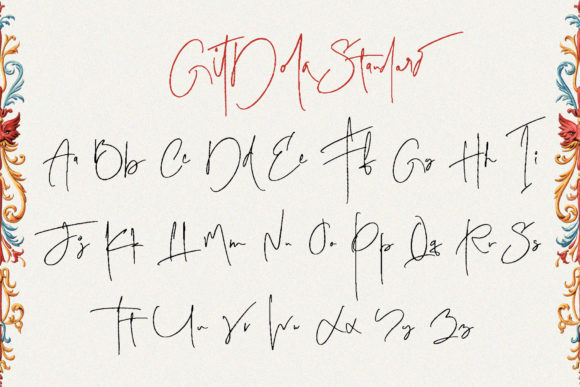 Git Dola Standard
Aa Bb Cc Dd Ee Ff Gg Hh Ii
Jj Kk Ll Mm Nn Oo Pp Qq Rr Ss
Tt Uu Vv Ww Xx Yy Zz